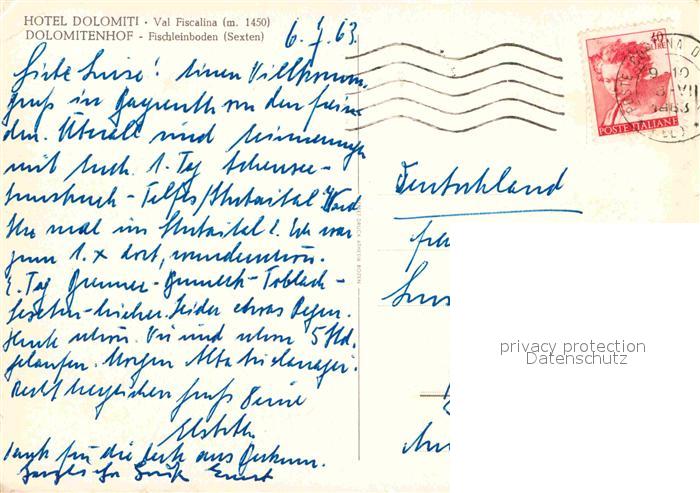 HOTEL DOLOMITI · Val Fiscalina (m. 1450)
DOLOMITENHOF - Fischleinboden (Sexten)
6. 7. 63.
Liebe Luise! Einen Willkomm
gruß in Bayreuth von den
den. Überall sind Erinnerungen
mit Euch. 1. Tag Achensee-
Innsbruck - Telfes/Stubaital. Ward
Ihr mal im Stubaital? Ich war
zum 1. x dort, wunderschön.
2. Tag Brenner - Bruneck - Toblach -
Sexten - hierher. Leider etwas Regen.
Heute schön. Wir sind schon 5 Std.
gelaufen. Morgen
Recht herzlichen Gruß Deine
Elsbeth
Dank für die Karte aus
Herzliche Grüße Ernst
POSTE ITALIANE
9-10
VII
1963
Deutschland
privacy protection
Datenschutz